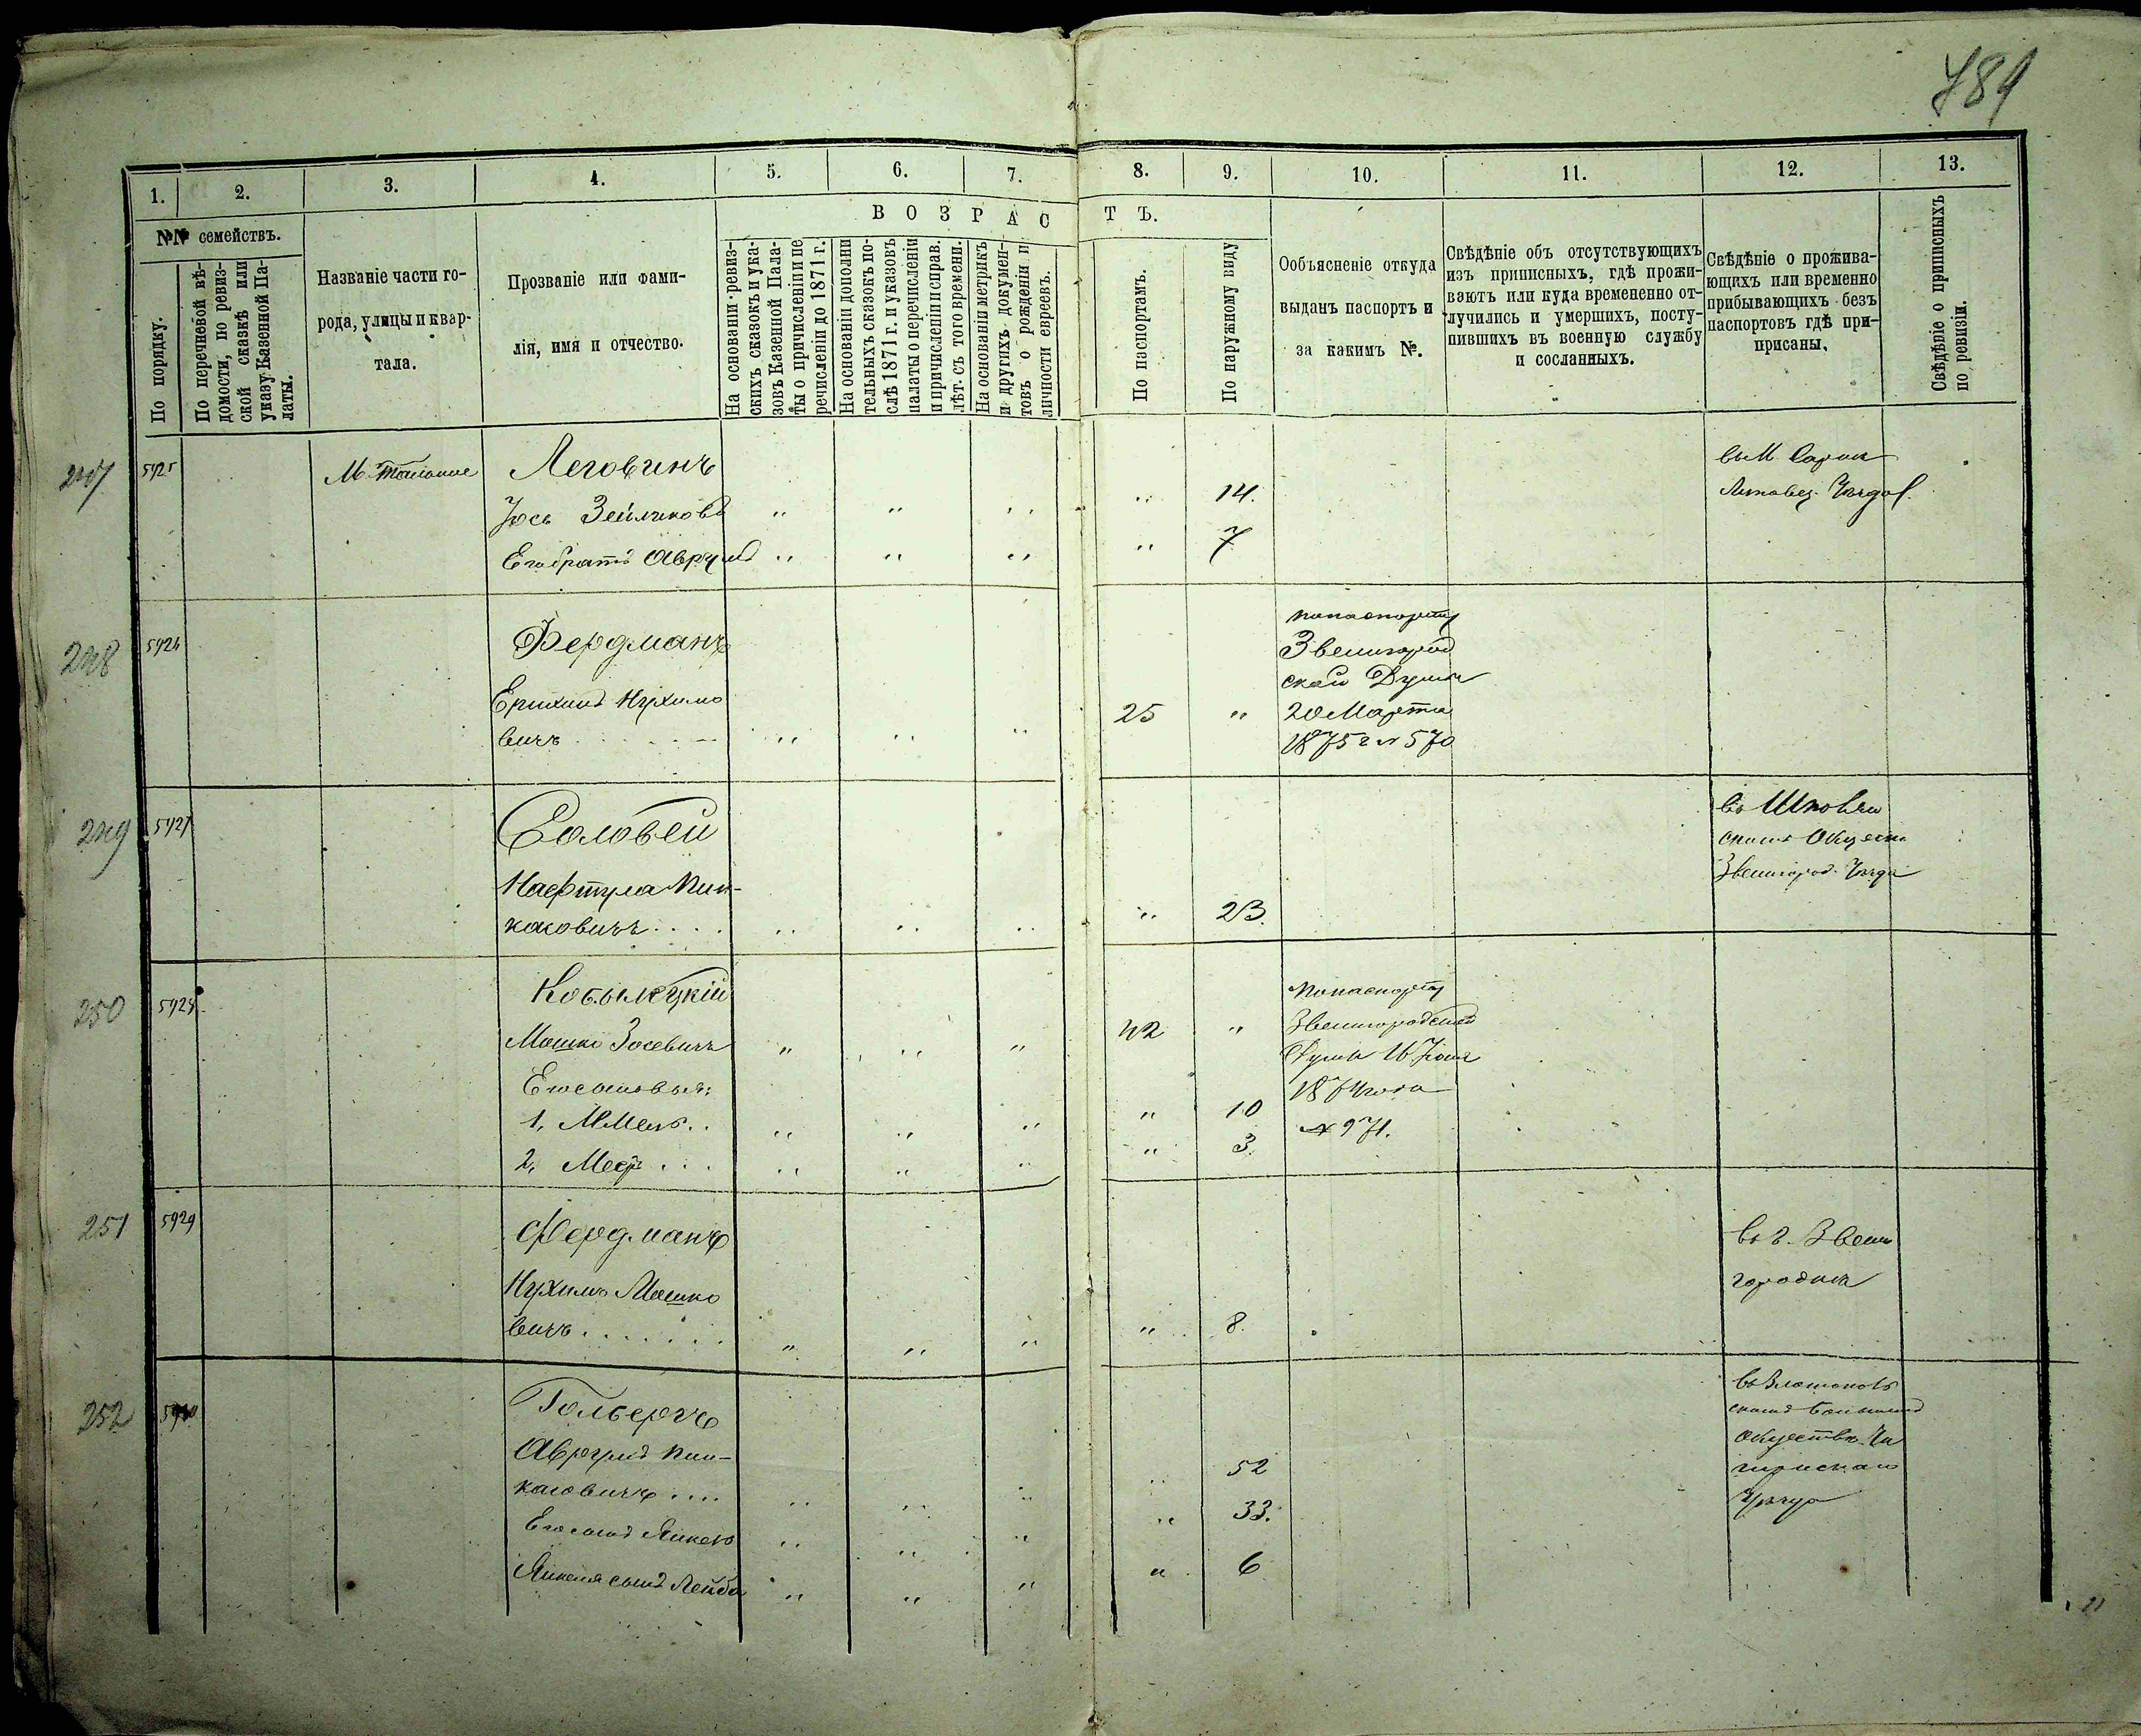 789
1.
2.
3.
4.
5.
6.
7.
8.
9.
10.
11.
12.
13.
№№ семействъ.
По порядку.
По перечневой вѣ-
домости, по ревиз-
ской сказкѣ или
указу Казенной Па-
латы.
Названіе части го-
рода, улицы и квар-
тала.
Прозваніе или фами-
лія, имя и отчество.
ВОЗРАСТЪ.
На основаніи ревиз-
скихъ сказокъ и ука-
зовъ Казенной Пала-
ты о причисленіи и пе
речисленіи до 1871 г.
На основаніи дополни
тельныхъ сказокъ по-
слѣ 1871 г. и указовъ
палаты о перечисленіи
и причисленіи и справ.
лѣт. съ того времени.
На основаніи метрикъ
и другихъ докумен-
товъ о рожденіи и
личности евреевъ.
По паспортамъ.
По наружному виду
Ообъясненіе откуда
выданъ паспортъ и
за какимъ №.
Свѣдѣніе объ отсутствующихъ
изъ приписныхъ, гдѣ прожи-
ваютъ или куда времененно от-
лучились и умершихъ, посту-
пившихъ въ военную службу
и сосланныхъ.
Свѣдѣніе о прожива-
ющихъ или временно
прибывающихъ безъ
паспортовъ гдѣ при-
писаны.
Свѣдѣніе о приписныхъ
по ревизіи.
247 5925 М. Тальное Леговинъ
Юсь Зейликовъ " " " " 14.
Его братъ Аврумъ " " " " 7
248 5926 Фердманъ
Нухимо
вичъ " " " 25 "
по паспорту
Звенигород
ской Думы
20 Марта
1875 г № 570
249 5927 Соловей
Нафтула Пин-
касовичъ " " " " 23.
въ
Звенигород. Уѣзда
250 5928 Кобылецкій
Мошко Іосевичъ " " " 42 "
Его сыновья:
1, " " " " 10
2, " " " " 3.
по паспорту
Звенигородской
Думы 16
1874 года
№ 971.
251 5929 Фердманъ
Нухимъ Мошко
вичъ " " " " 8.
въ г. Звени
городкѣ
252 5930 Гольбергъ
Аврумъ Пин-
касовичъ " " " " 52
Его сынъ Янкель " " " " 33.
Янкеля сынъ Лейба " " " " 6
общества Чи
гиринскаго
Уѣзда